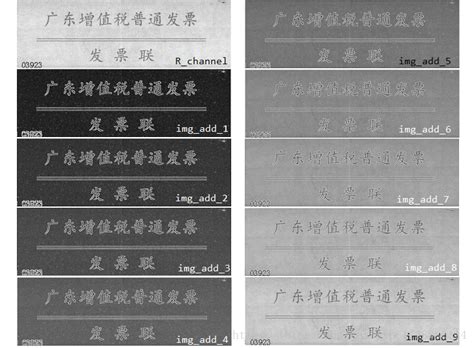 广东增值税普通发票
发票联
03923
R_channel
广东增值税普通发票
发票联
img_add_1
广东增值税普通发票
发票联
img_add_2
广东增值税普通发票
发票联
img_add_3
广东增值税普通发票
发票联
img_add_4
广东增值税普通发票
发票联
img_add_5
广东增值税普通发票
发票联
img_add_6
广东增值税普通发票
发票联
img_add_7
广东增值税普通发票
发票联
03923
img_add_8
广东增值税普通发票
发票联
03923
img_add_9